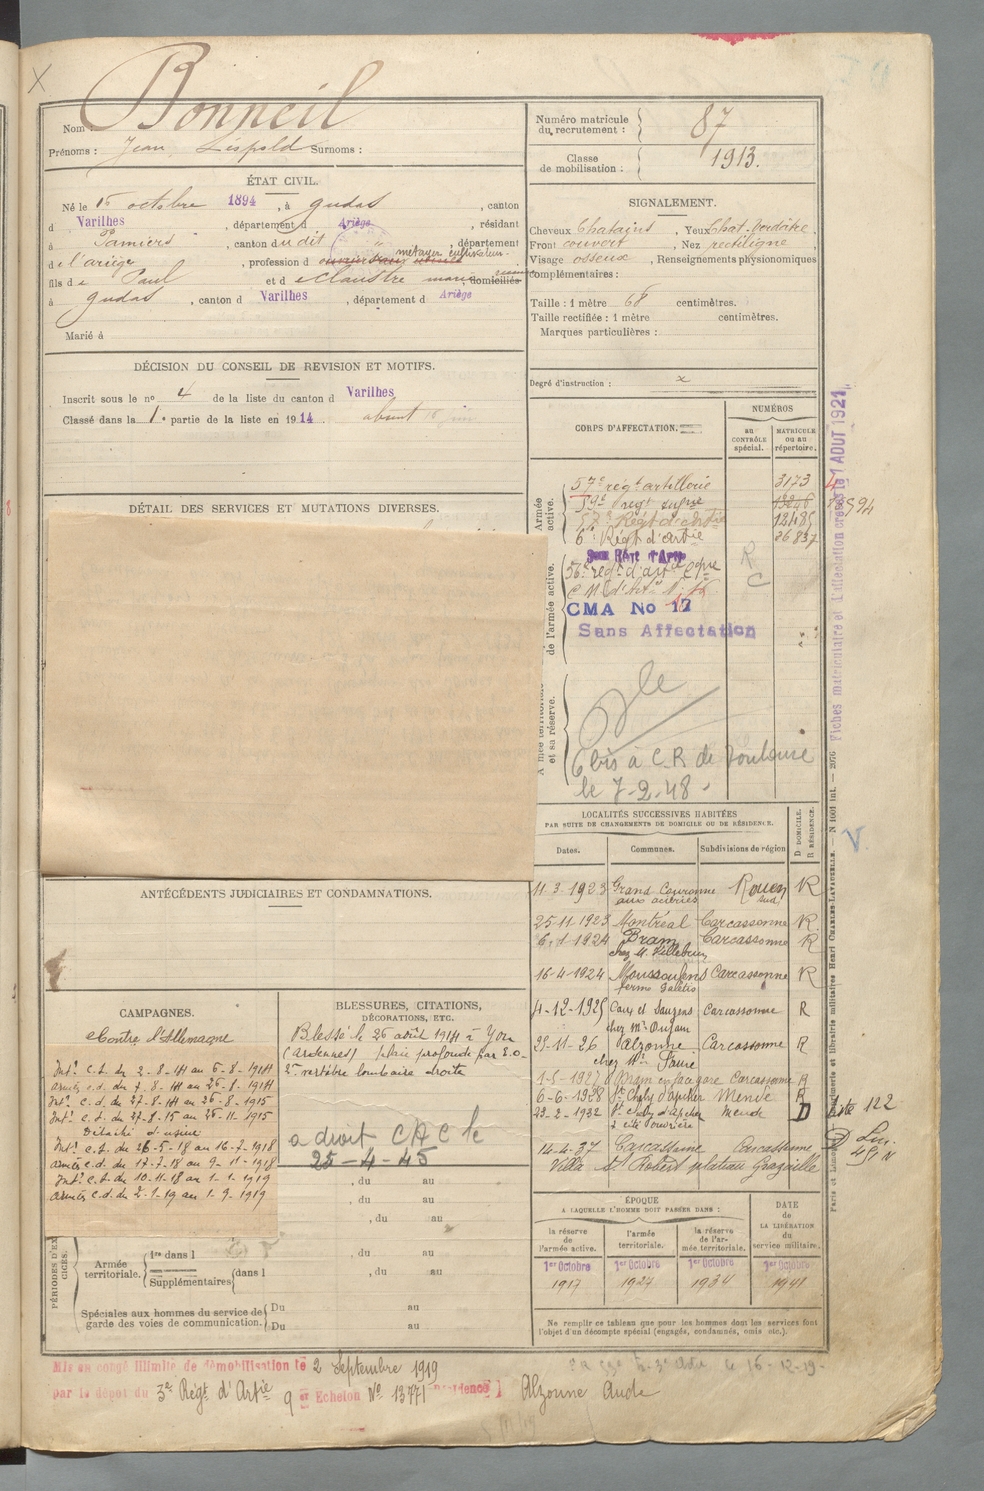 Bonneil
Nom :
Prénoms : Jean, Léopold Surnoms :
Numéro matricule du recrutement : 87
Classe de mobilisation : 1913.
ÉTAT CIVIL.
Né le 16 octobre 1894, à Gudas, canton
d Varilhes, département d Ariège, résidant
à Pamiers, canton du dit, département
de l'ariège, profession d métayer cultivateur
fils de Paul et de Claustre marie domiciliés
à Gudas, canton d Varilhes, département d Ariège
Marié à
SIGNALEMENT.
Cheveux Chatains, Yeux Chat. verdâtre.
Front couvert, Nez rectiligne
Visage osseux, Renseignements physionomiques
complémentaires :
Taille : 1 mètre 68 centimètres.
Taille rectifiée : 1 mètre centimètres.
Marques particulières :
Degré d'instruction : x
DÉCISION DU CONSEIL DE REVISION ET MOTIFS.
Inscrit sous le nº 4 de la liste du canton d Varilhes
Classé dans la 1e partie de la liste en 1914 absent
DÉTAIL DES SERVICES ET MUTATIONS DIVERSES.
CORPS D'AFFECTATION.
NUMÉROS
au CONTRÔLE spécial.
MATRICULE ou au répertoire.
Armée active.
57e régt artillerie 3173
59e regt infrie 18594
57e Régt d'artie 12485
6e Régt d'artie 26837
56e régt d'artie Cgne
CMA No 17
Sans Affectation
R
C
de l'armée active.
Armée territoriale et sa réserve.
6 bis à C.R. de Toulouse
le 7-2-48.
Fiches matriculaire et d'affectation créées le 1 AOUT 1921
LOCALITÉS SUCCESSIVES HABITÉES
PAR SUITE DE CHANGEMENTS DE DOMICILE OU DE RÉSIDENCE.
Dates. Communes. Subdivisions de région D DOMICILE. R RÉSIDENCE.
11-3-1923 Grand Couronne Rouen Sud R
aux aciéries
25-11-1923 Montréal Carcassonne R
6-1-1924 Bram Carcassonne R
chez M. Villebrun
16-4-1924 Moussoulens Carcassonne R
ferme Galetis
4-12-1925 Caux et Sauzens Carcassonne R
29-11-26 Alzonne Carcassonne R
1-5-1927 Bram en face gare Carcassonne R
6-6-1928 St Chély d'apcher Mende R
23-2-1932 St Chély d'apcher Mende D
cité ouvrière
14-4-37 Carcassonne Carcassonne
Villa St Robert plateau Grazaille
V.
Liste 122
ANTÉCÉDENTS JUDICIAIRES ET CONDAMNATIONS.
CAMPAGNES.
Contre l'Allemagne
Intr C.S. du 2-8-14 au 6-8-1914
armées c.d. du 7-8-14 au 26-8-1914
Intr C.d. du 27-8-14 au 26-8-1915
Intr C.S. du 27-8-15 au 26-11-1915
Détaché d'usine
Intr C.S. du 26-5-18 au 16-7-1918
armées c.d. du 17-7-18 au 9-11-1918
Intr C.d. du 10-11-18 au 1-1-1919
armées c.d. du 2-1-19 au 1-9-1919
BLESSURES, CITATIONS,
DÉCORATIONS, ETC.
Blessé le 26 août 1914 à Yon
(Ardennes) plaie profonde par E.O.
2e vertèbre lombaire droite
a droit CAC le
25-4-45
, du au
, du au
, du au
PÉRIODES D'EXERCICES.
Armée territoriale.
1re dans l , du au
Supplémentaires dans l , du au
Spéciales aux hommes du service de garde des voies de communication.
Du au
Du au
ÉPOQUE
A LAQUELLE L'HOMME DOIT PASSER DANS :
DATE de LA LIBÉRATION du service militaire.
la réserve de l'armée active.
l'armée territoriale.
la réserve de l'armée territoriale.
1er Octobre 1er Octobre 1er Octobre 1er Octobre
1917 1927 1934 1941
Ne remplir ce tableau que pour les hommes dont les services font
l'objet d'un décompte spécial (engagés, condamnés, omis etc.).
Paris et Limoges. — Imprimerie et librairie militaires Henri CHARLES-LAVAUZELLE. — N 1001 int.
Mis en congé illimité de démobilisation le 2 Septembre 1919
par le dépôt du 3e Régt d'Artie 9e Echelon Nº 13771 Alzonne Aude